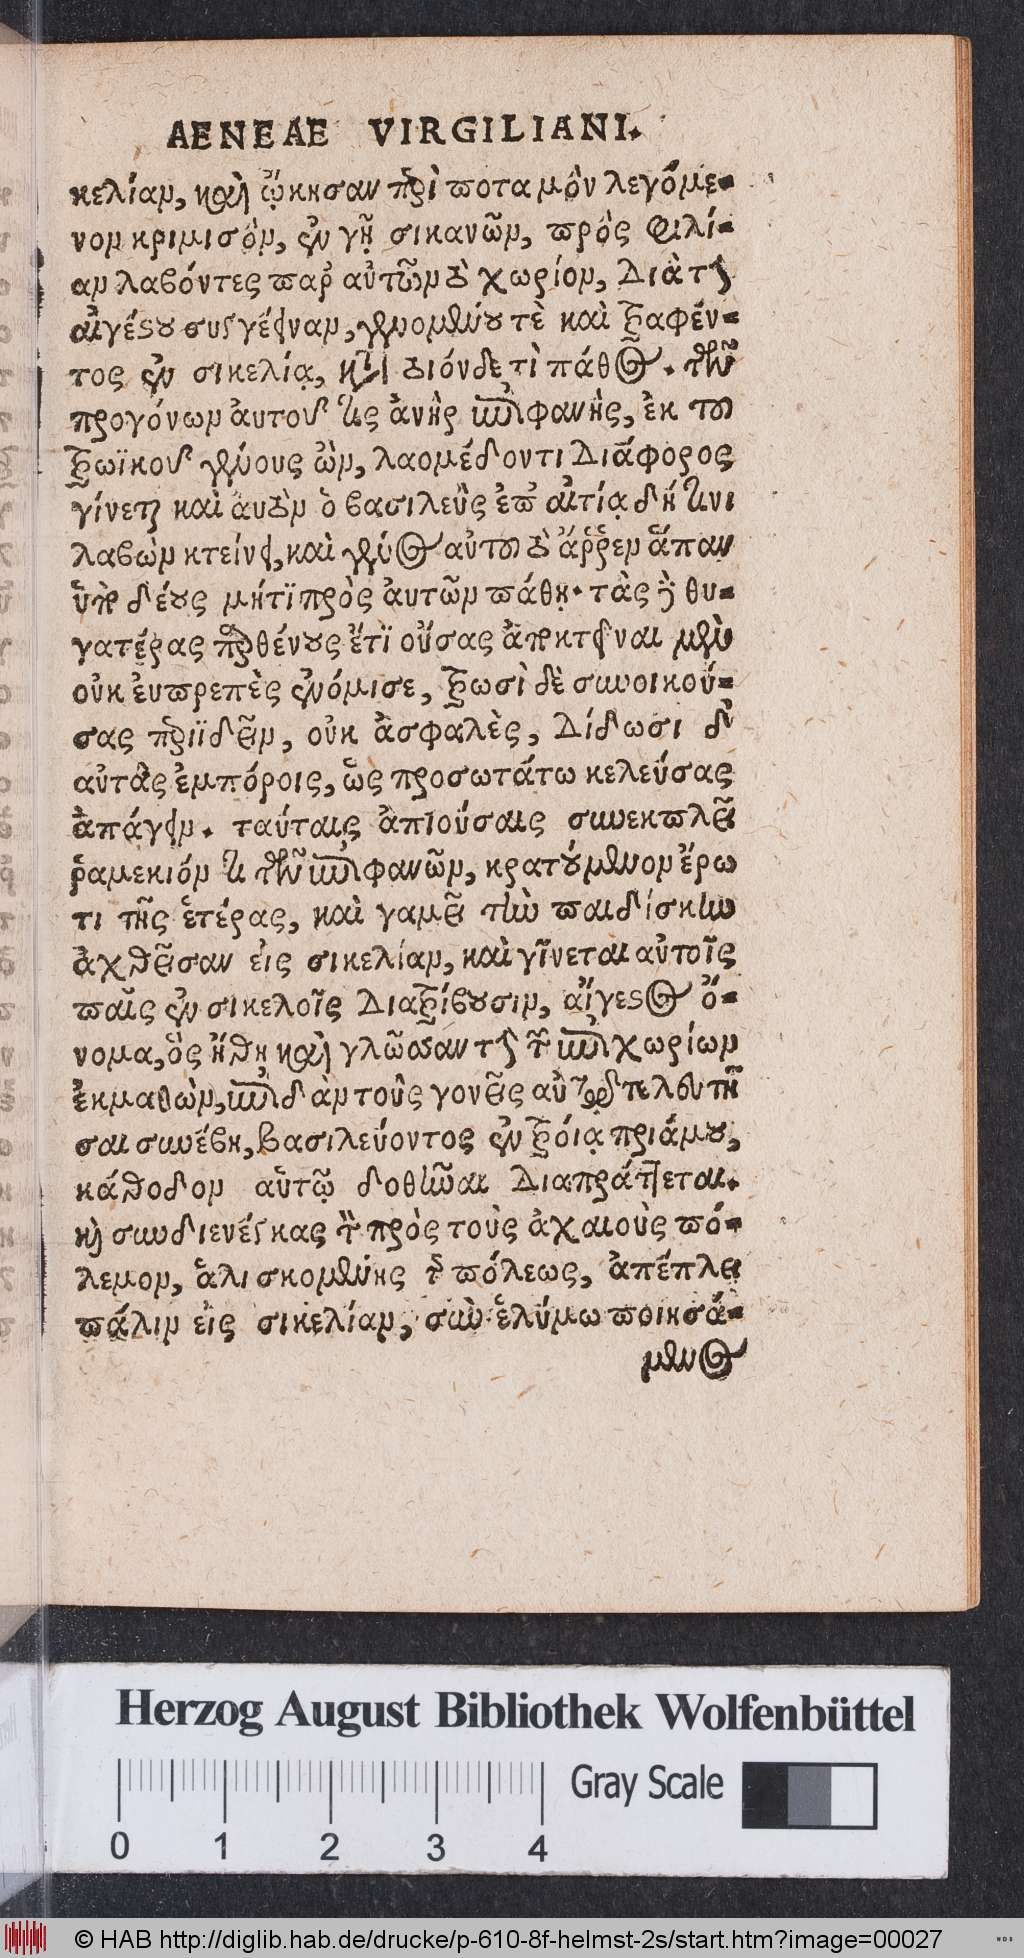 AENEAE VIRGILIANI.
κελίαν, καὶ ᾤκησαν περὶ ποταμὸν λεγόμε-
νον κριμισὸν, ἐν γῇ σικανῶν, πρὸς φιλί-
αν λαβόντες παρ' αὐτῶν τὸ χωρίον, διὰ τὴν
αἰγέστου συγγένειαν, γενομένου τὲ καὶ τραφέν-
τος ἐν σικελίᾳ, κατὰ τοιόνδε τὶ πάθος. τῶν
προγόνων αὐτοῦ τις ἀνὴρ ἐπιφανὴς, ἐκ τοῦ
τρωϊκοῦ γένους ὢν, λαομέδοντι διάφορος
γίνεται καὶ αὐτὸν ὁ βασιλεὺς ἐπ' αἰτίᾳ δή τινι
λαβὼν κτείνει, καὶ γένος αὐτοῦ τὸ ἄρρεν ἅπαν
ὑπὸ δέους μήτι πρὸς αὐτῶν πάθῃ. τὰς δὲ θυ-
γατέρας παρθένους ἔτι οὔσας ἀποκτεῖναι μὲν
οὐκ εὐπρεπὲς ἐνόμισε, τρωσὶ δὲ συνοικού-
σας περιϊδεῖν, οὐκ ἀσφαλὲς, δίδωσι δ'
αὐτὰς ἐμπόροις, ὡς προσωτάτω κελεύσας
ἀπάγειν. ταύταις ἀπιούσαις συνεκπλεῖ
μειράκιόν τι τῶν ἐπιφανῶν, κρατούμενον ἔρω
τι τῆς ἑτέρας, καὶ γαμεῖ τὴν παιδίσκην
ἀχθεῖσαν εἰς σικελίαν, καὶ γίνεται αὐτοῖς
παῖς ἐν σικελοῖς διατρίβουσιν, αἴγεστος ὄ-
νομα, ὃς ἤθη καὶ γλῶσσαν τὴν τῶν ἐπιχωρίων
ἐκμαθὼν, ἐπειδὰν τοὺς γονεῖς αὐτῷ τελευτῆ
σαι συνέβη, βασιλεύοντος ἐν τροίᾳ πριάμου,
κάθοδον αὑτῷ δοθῆναι διαπράττεται.
καὶ συνδιενέγκας τὸν πρὸς τοὺς ἀχαιοὺς πό-
λεμον, ἁλισκομένης τῆς πόλεως, ἀπέπλει
πάλιν εἰς σικελίαν, σὺν ἑλύμῳ ποιησά-
μενος
Herzog August Bibliothek Wolfenbüttel
Gray Scale
0 1 2 3 4
© HAB http://diglib.hab.de/drucke/p-610-8f-helmst-2s/start.htm?image=00027